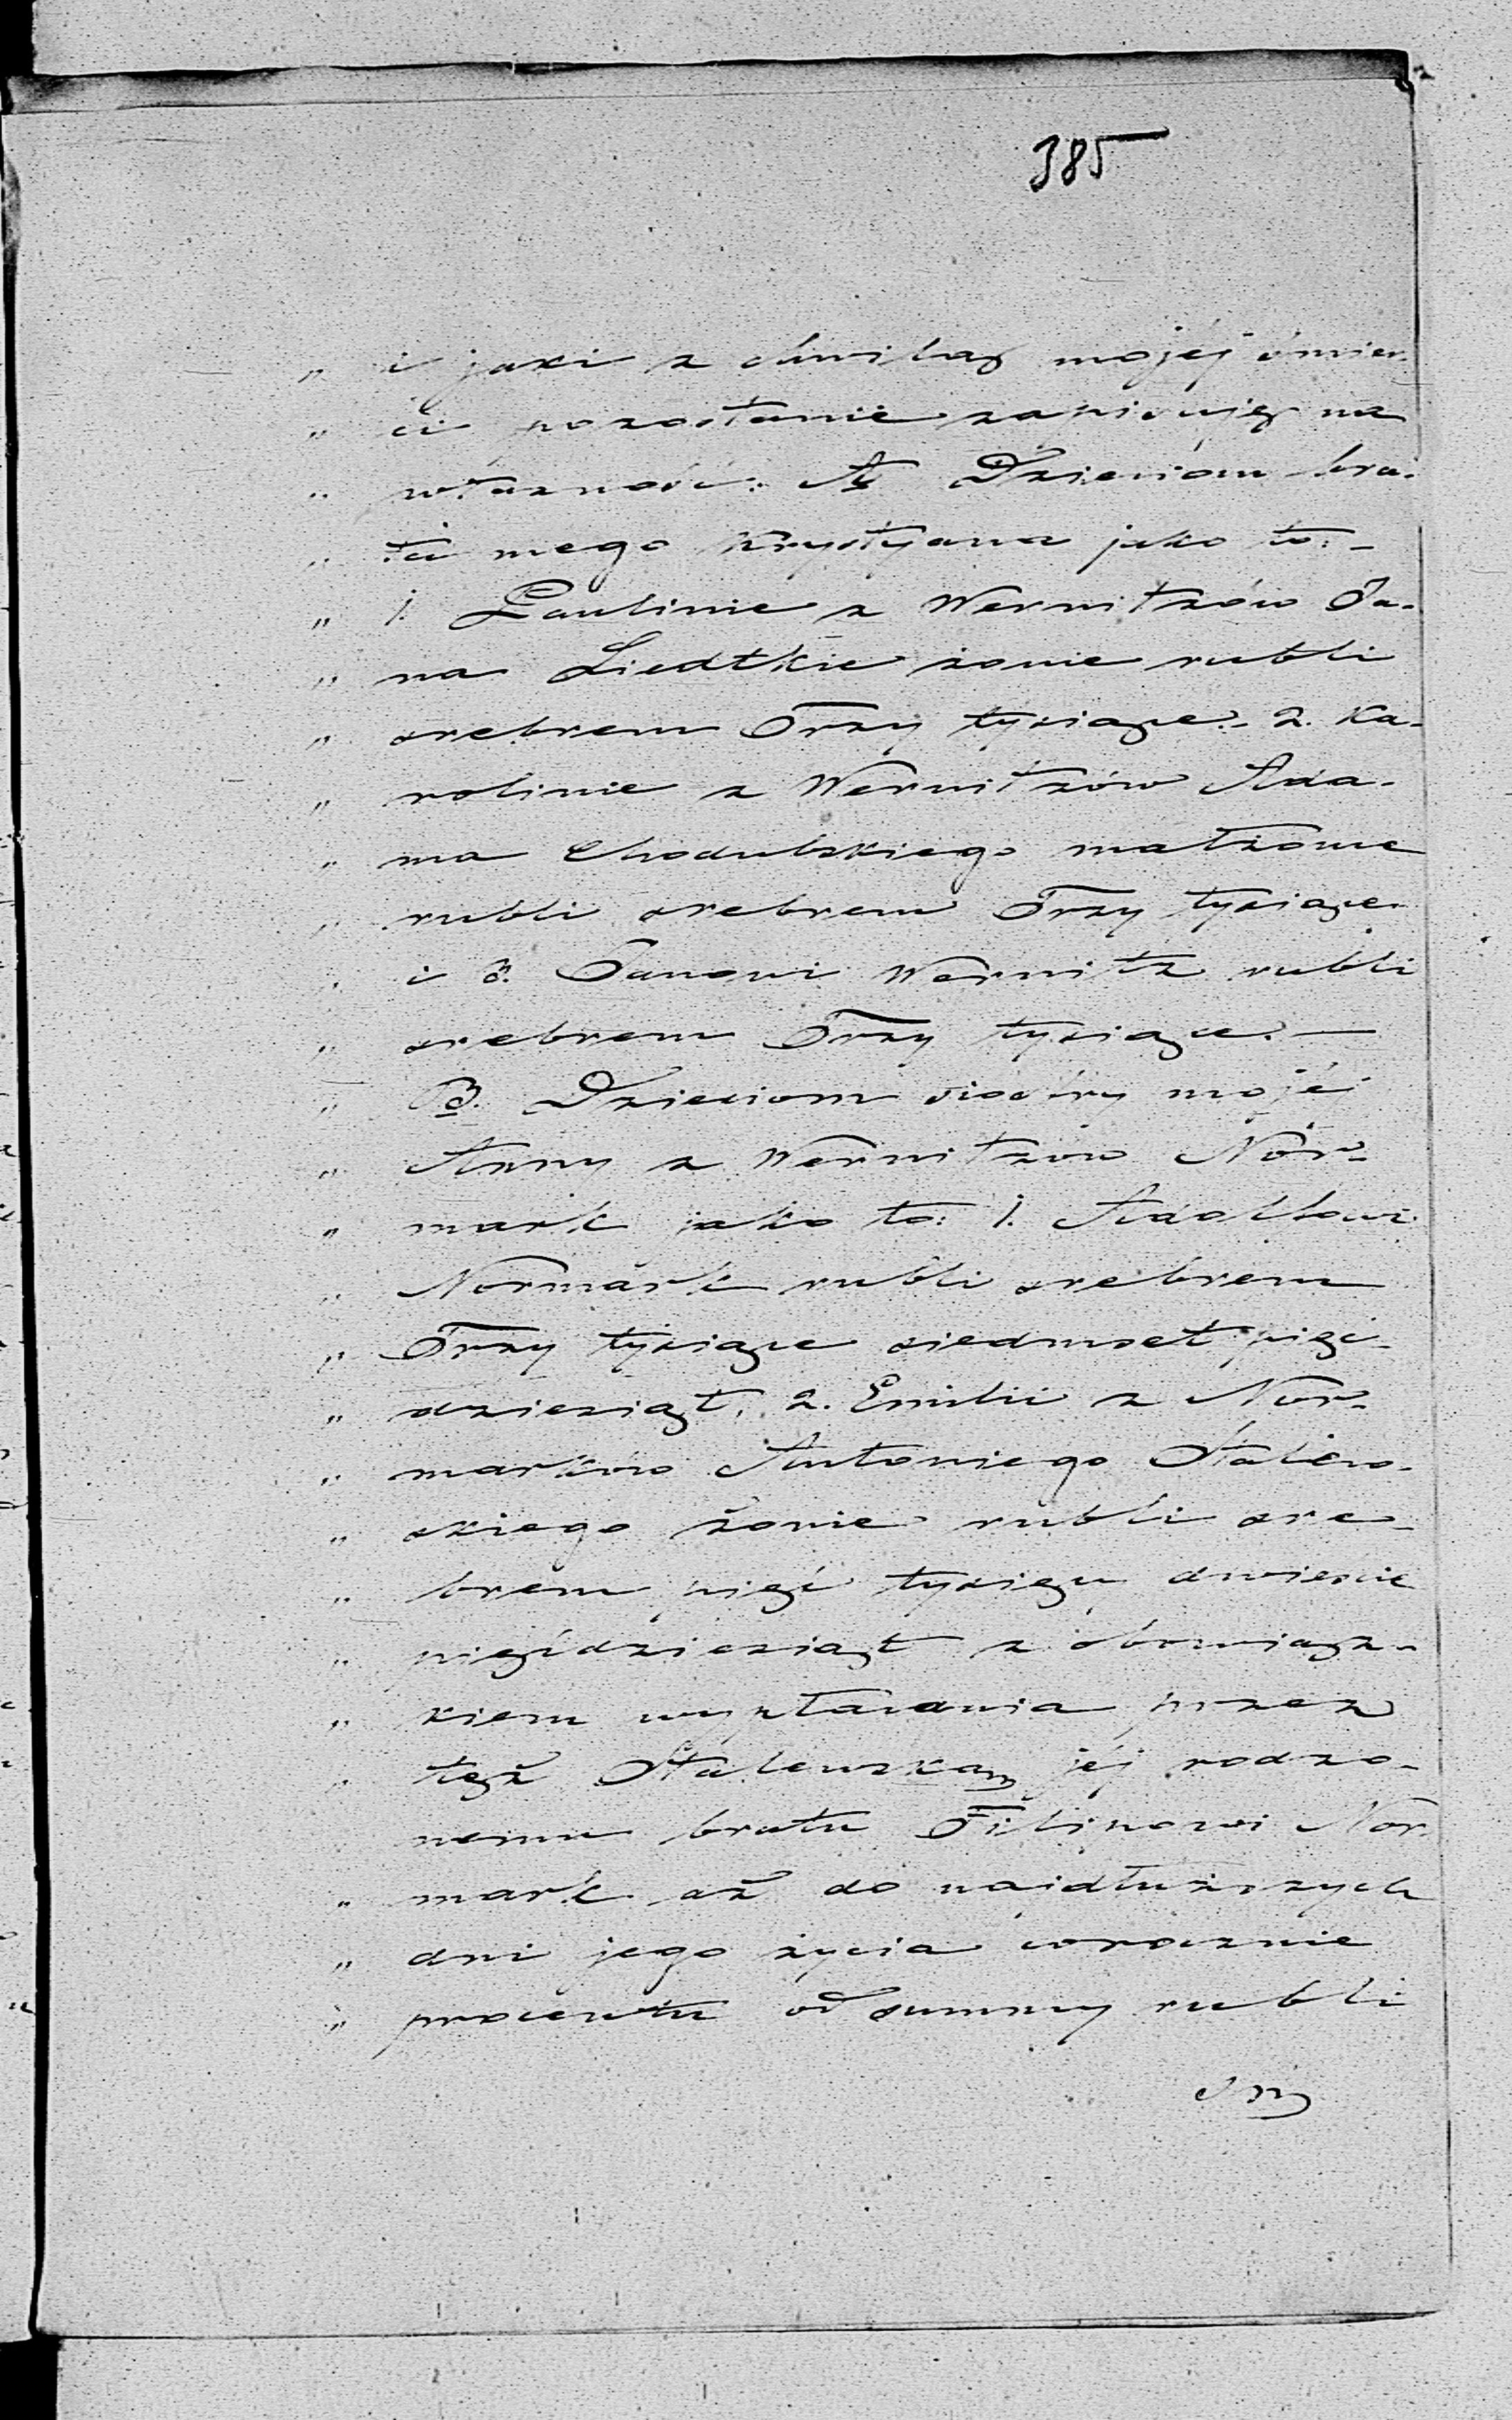 385
„ i jaki z chwilą mojéj śmier-
„ ci pozostanie zapisuję na
„ własność: A Dzieciom bra-
„ ta mego Krystyana jako to:-
„ 1. Paulinie z Wernitzów Ja-
„ na Liedtkie żonie rubli
„ srebrem Trzy tysiące. 2. Ka-
„ rolinie z Wernitzów Ada-
„ ma Chodubskiego małżonce
„ rubli srebrem Trzy tysiące
„ i 3. Janowi Wernitz rubli
„ srebrem Trzy tysiące.—
„ B. Dzieciom siostry mojéj
„ Anny z Wernitzów Nor-
„ mark jako to: 1. Adolfowi
„ Normark rubli srebrem
„ Trzy tysiące siedmset pięć-
„ dziesiąt, 2. Emilii z Nor-
„ marków Antoniego Stalew-
„ skiego żonie rubli sre-
„ brem pięć tysięcy dwieście
„ pięćdziesiąt z obowiąz-
„ kiem wypłacania przez
„ też Stalewską jéj rodzo-
nemu bratu Filipowi Nor-
„ mark aż do najdłuższych
„ dni jego życia corocznie
„ procentu od summy rubli